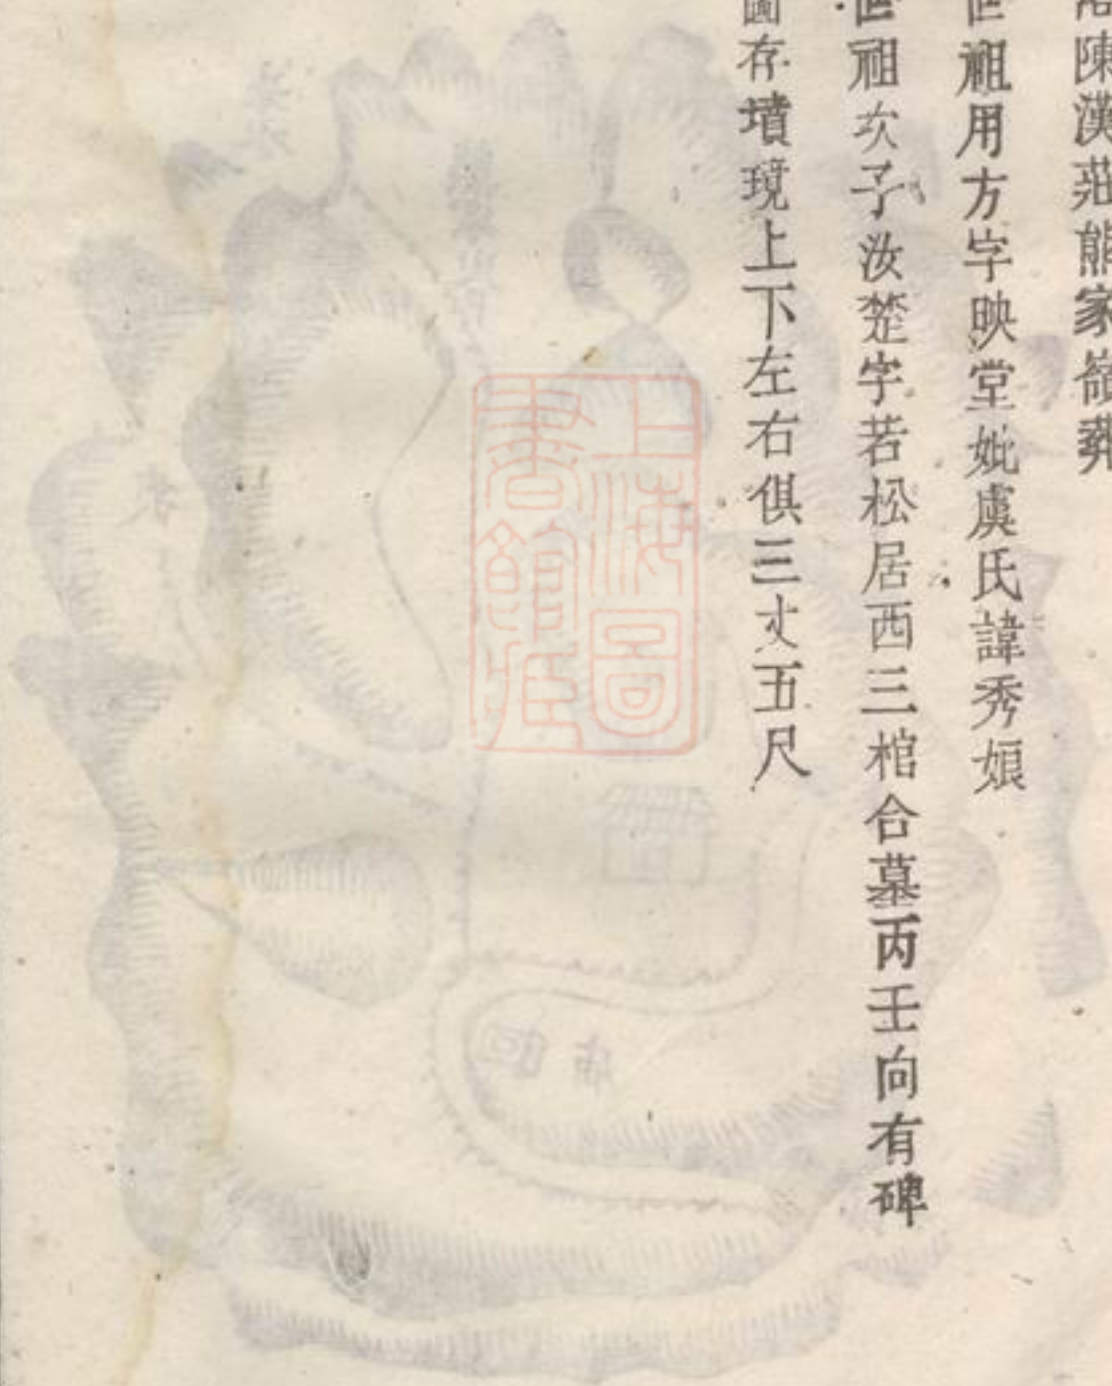 陳漢莊熊家嶺葬
世祖用方字映堂妣虞氏諱秀娘
世祖次子汝楚字若松居西三棺合墓丙壬向有碑
圖存墳現上下左右俱三丈五尺
上海圖
書館藏